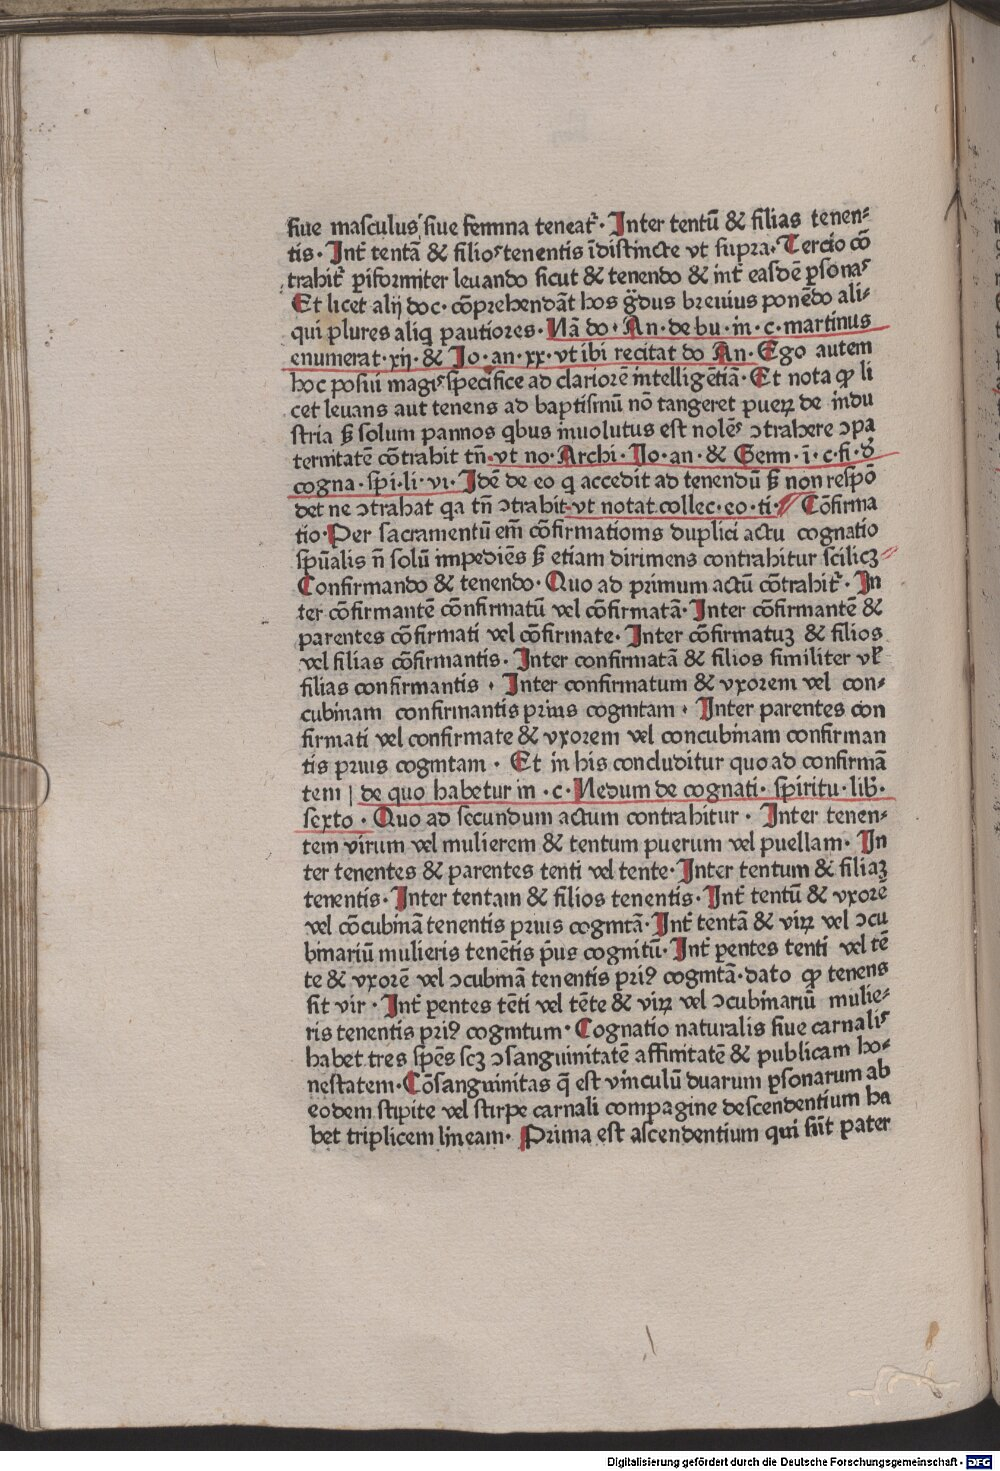 siue masculus siue femina teneat᷒. Inter tentū & filias tenen⸗
tis. Int̄ tentā & filioꝰ tenentis īdistincte vt supra. Tercio cō
trahit᷒ ꝑiformiter leuando sicut & tenendo & int̄ easdē ꝑsonaꝰ
Et licet alij doc. cōprehendāt hos g̈dus breuius ponēdo ali⸗
qui plures aliq̄ pautiores. Nā do. An. de bu. in. c. martinus
enumerat. xij. & Jo. an. xx. vt ibi recitat do An. Ego autem
hoc posui magiꝰ specifice ad clariorē intelligētiā. Et nota ꝙ li
cet leuans aut tenens ad baptismū nō tangeret pueꝝ de indu
stria ꝫ solum pannos qbus inuolutus est nolēꝰ ↄtrahere ↄpa
ternitatē cōtrahit tn̄. vt no. Archi. Jo. an. & Gem. ī. c. fi. d̄
cogna. spi. li. vi. Idē de eo q accedit ad tenendū ꝫ non respō
det ne ↄtrahat qa tn̄ ↄtrahit. vt notat collec. eo. ti. Cōfirma
tio. Per sacramentū em̄ cōfirmationis duplici actu cognatio
spūalis n̄ solū impediēs ꝫ etiam dirimens contrahitur scilicꝫ
Confirmando & tenendo. Quo ad primum actū cōtrahit᷒. In
ter cōfirmantē cōnfirmatū vel cōfirmatā. Inter cōfirmantē &
parentes cōfirmati vel cōfirmate. Inter cōfirmatuꝫ & filios
vel filias cōfirmantis. Inter confirmatā & filios similiter vł
filias confirmantis. Inter confirmatum & vxorem vel con⸗
cubinam confirmantis prius cognitam. Inter parentes con
firmati vel confirmate & vxorem vel concubinam confirman
tis prius cognitam. Et in his concluditur quo ad confirmā
tem | de quo habetur in .c. Nedum de cognati. spiritu. lib.
sexto. Quo ad secundum actum contrahitur. Inter tenen⸗
tem virum vel mulierem & tentum puerum vel puellam. In
ter tenentes & parentes tenti vel tente. Inter tentum & filiaꝫ
tenentis. Inter tentam & filios tenentis. Int̄ tentū & vxorē
vel cōcubinā tenentis prius cognitā. Int̄ tentā & viꝝ vel ↄcu
binariū mulieris tenētis p̄us cognitū. Int̄ ꝑentes tenti vel tē
te & vxorē vel ↄcubinā tenentis priꝰ cognitā. dato ꝙ tenens
sit vir. Int̄ ꝑentes tēti vel tēte & viꝝ vel ↄcubinariū mulie⸗
ris tenentis priꝰ cognitum. Cognatio naturalis siue carnaliꝰ
habet tres spēs scꝫ ↄsanguinitatē affinitatē & publicam ho⸗
nestatem. Cōsanguinitas q̄ est vinculū duarum ꝑsonarum ab
eodem stipite vel stirpe carnali compagine descendentium ha
bet triplicem lineam. Prima est ascendentium qui sūt pater
Digitalisierung gefördert durch die Deutsche Forschungsgemeinschaft - DFG